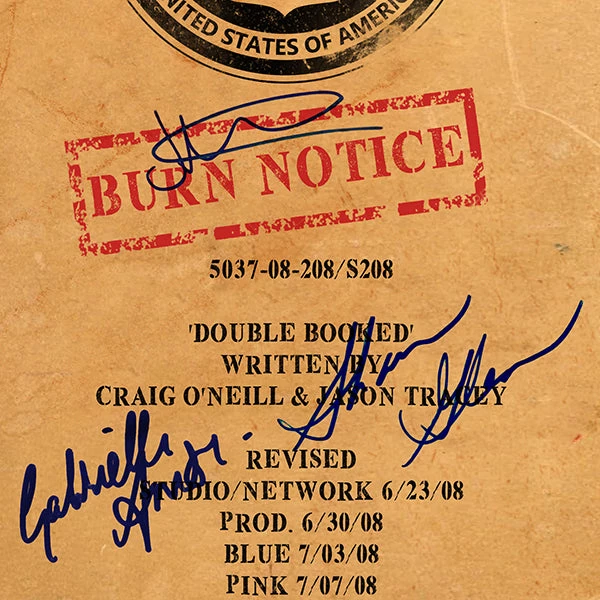 UNITED STATES OF AMERICA
BURN NOTICE
5037-08-208/S208
'DOUBLE BOOKED'
WRITTEN BY
CRAIG O'NEILL & JASON TRACEY
Gabrielle
REVISED
STUDIO/NETWORK 6/23/08
PROD. 6/30/08
BLUE 7/03/08
PINK 7/07/08